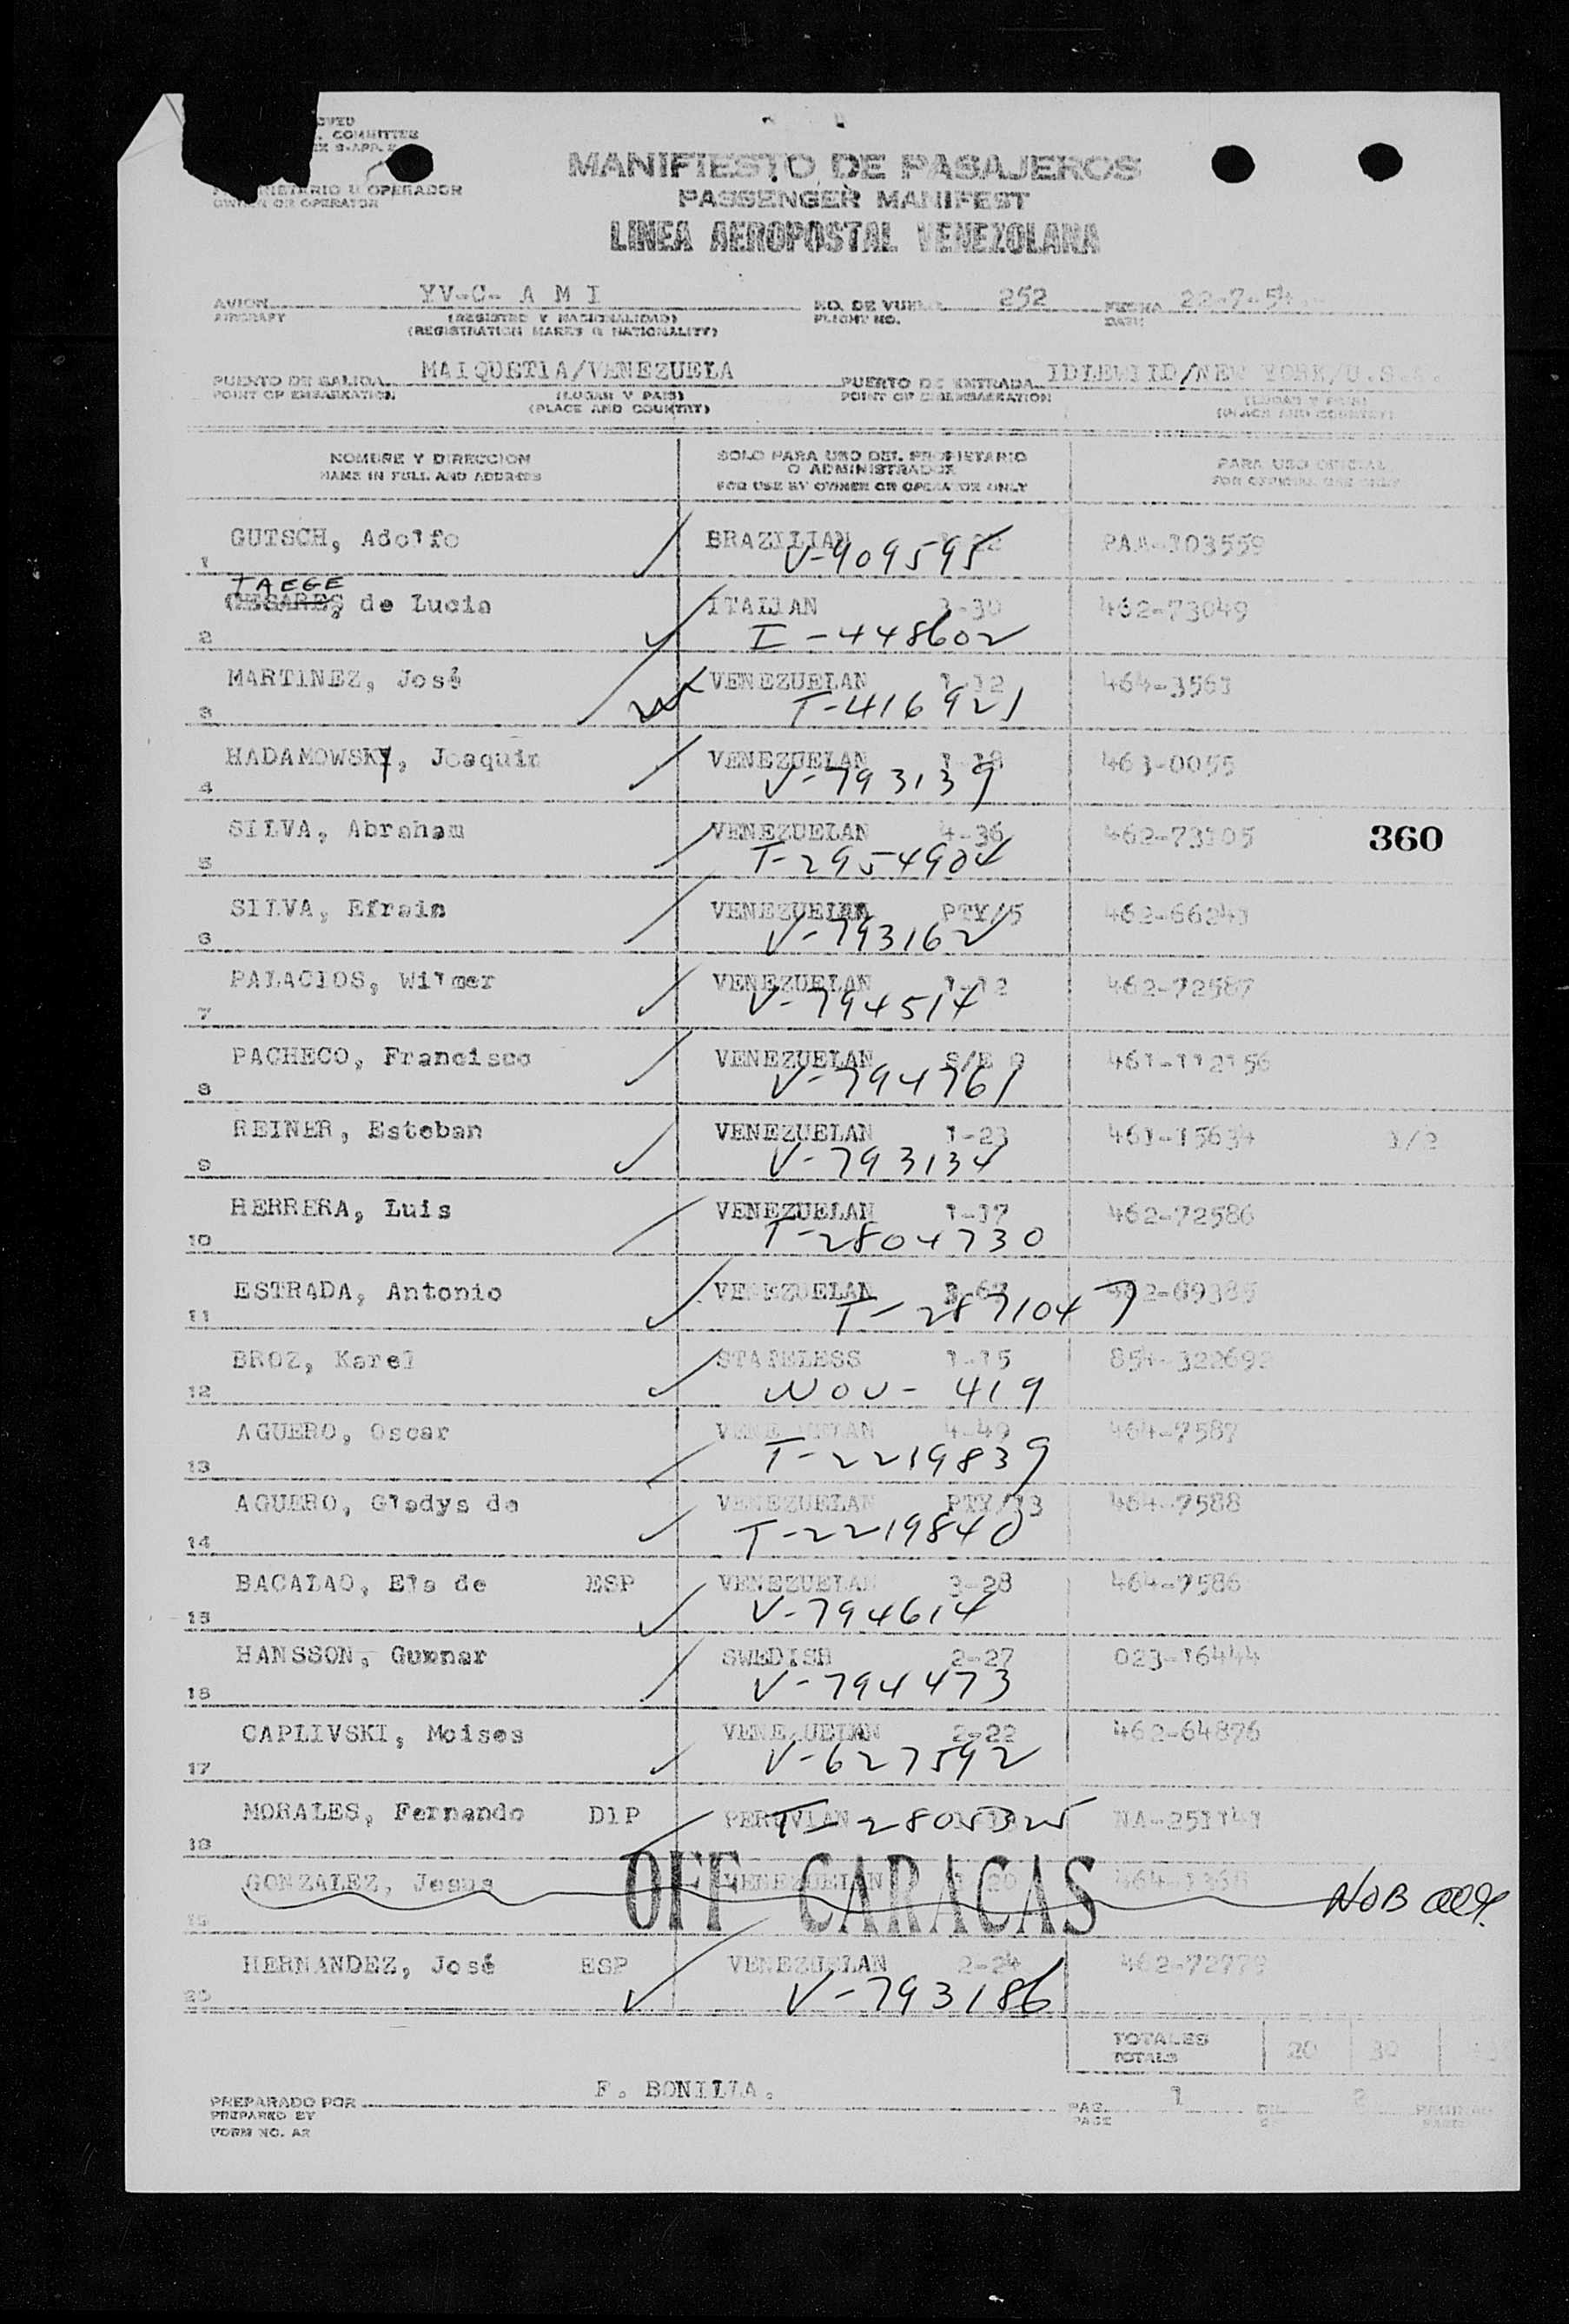 OVED
. COMMITTEE
EX 9-APR. 2
PROPIETARIO U OPERADOR
OWNER OR OPERATOR
MANIFIESTO DE PASAJEROS
PASSENGER MANIFEST
LINEA AEROPOSTAL VENEZOLANA
AVION YV-C- A M I NO. DE VUELO 252 FECHA 22-7-54
AIRCRAFT (REGISTRO Y NACIONALIDAD) FLIGHT NO. DATE
(REGISTRATION MARKS & NATIONALITY)
PUERTO DE SALIDA MAIQUETIA/VENEZUELA PUERTO DE ENTRADA IDLEWIID/NEW YORK/U.S.A.
POINT OF EMBARKATION (LUGAR Y PAIS) POINT OF DISEMBARKATION (LUGAR Y PAIS)
(PLACE AND COUNTRY) (PLACE AND COUNTRY)
NOMBRE Y DIRECCION SOLO PARA USO DEL PROPIETARIO PARA USO OFICIAL
O ADMINISTRADOR
NAME IN FULL AND ADDRESS FOR USE BY OWNER OR OPERATOR ONLY FOR OFFICIAL USE ONLY
GUTSCH, Adolfo BRAZILIAN PAA-103559
1 V-909595
TAEGE
CESARES de Lucia ITALIAN 1-30 462-73049
2 I-448602
MARTINEZ, José VENEZUELAN 1-12 464-3563
3 T-416921
HADAMOWSKY, Joaquin VENEZUELAN 1-18 463-0055
4 V-793139
SILVA, Abraham VENEZUELAN 4-36 462-73105 360
5 T-2954904
SILVA, Efrain VENEZUELAN PTY/5 462-66243
6 V-793162
PALACIOS, Wilmer VENEZUELAN 1-12 462-72587
7 V-794514
PACHECO, Francisco VENEZUELAN 461-112156
8 V-794761
REINER, Esteban VENEZUELAN 1-23 461-15634 1/2
9 V-793134
HERRERA, Luis VENEZUELAN 1-17 462-72586
10 T-2804730
ESTRADA, Antonio VENEZUELAN 462-69385
11 T-2871047
BROZ, Karel STATELESS 1-15 854-322692
12 NOU-419
AGUERO, Oscar VENEZUELAN 4-49 464-7587
13 T-2219839
AGUERO, Gladys de VENEZUELAN PTY/13 464-7588
14 T-2219840
BACALAO, Ela de ESP VENEZUELAN 3-28 464-7586
15 V-794614
HANSSON, Gunnar SWEDISH 2-27 023-16444
16 V-794473
CAPLIVSKI, Moises VENEZUELAN 2-22 462-64876
17 V-627592
MORALES, Fernando DIP PERUVIAN NA-251141
18 T-2805325
GONZALEZ, Jesus VENEZUELAN 464-1368
OFF CARACAS NOB
19
HERNANDEZ, José ESP VENEZUELAN 2-24 462-72779
20 V-793186
TOTALES 20 30
TOTALS
PREPARADO POR F. BONILLA. PAG. 1 DE 2 PAGINAS
PREPARED BY PAGE
FORM NO. AR